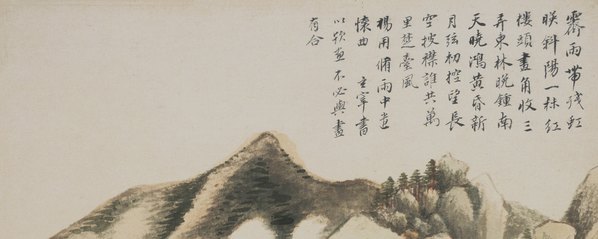 霽雨帶殘虹
映斜陽一抹紅
樓頭畫角收三
弄東林晚鍾南
天曉鴻黃昏新
月弦初控望長
空披襟誰共萬
里楚臺風
楊用脩雨中遣
懷曲 玄宰書
以畫不必與畫
有合